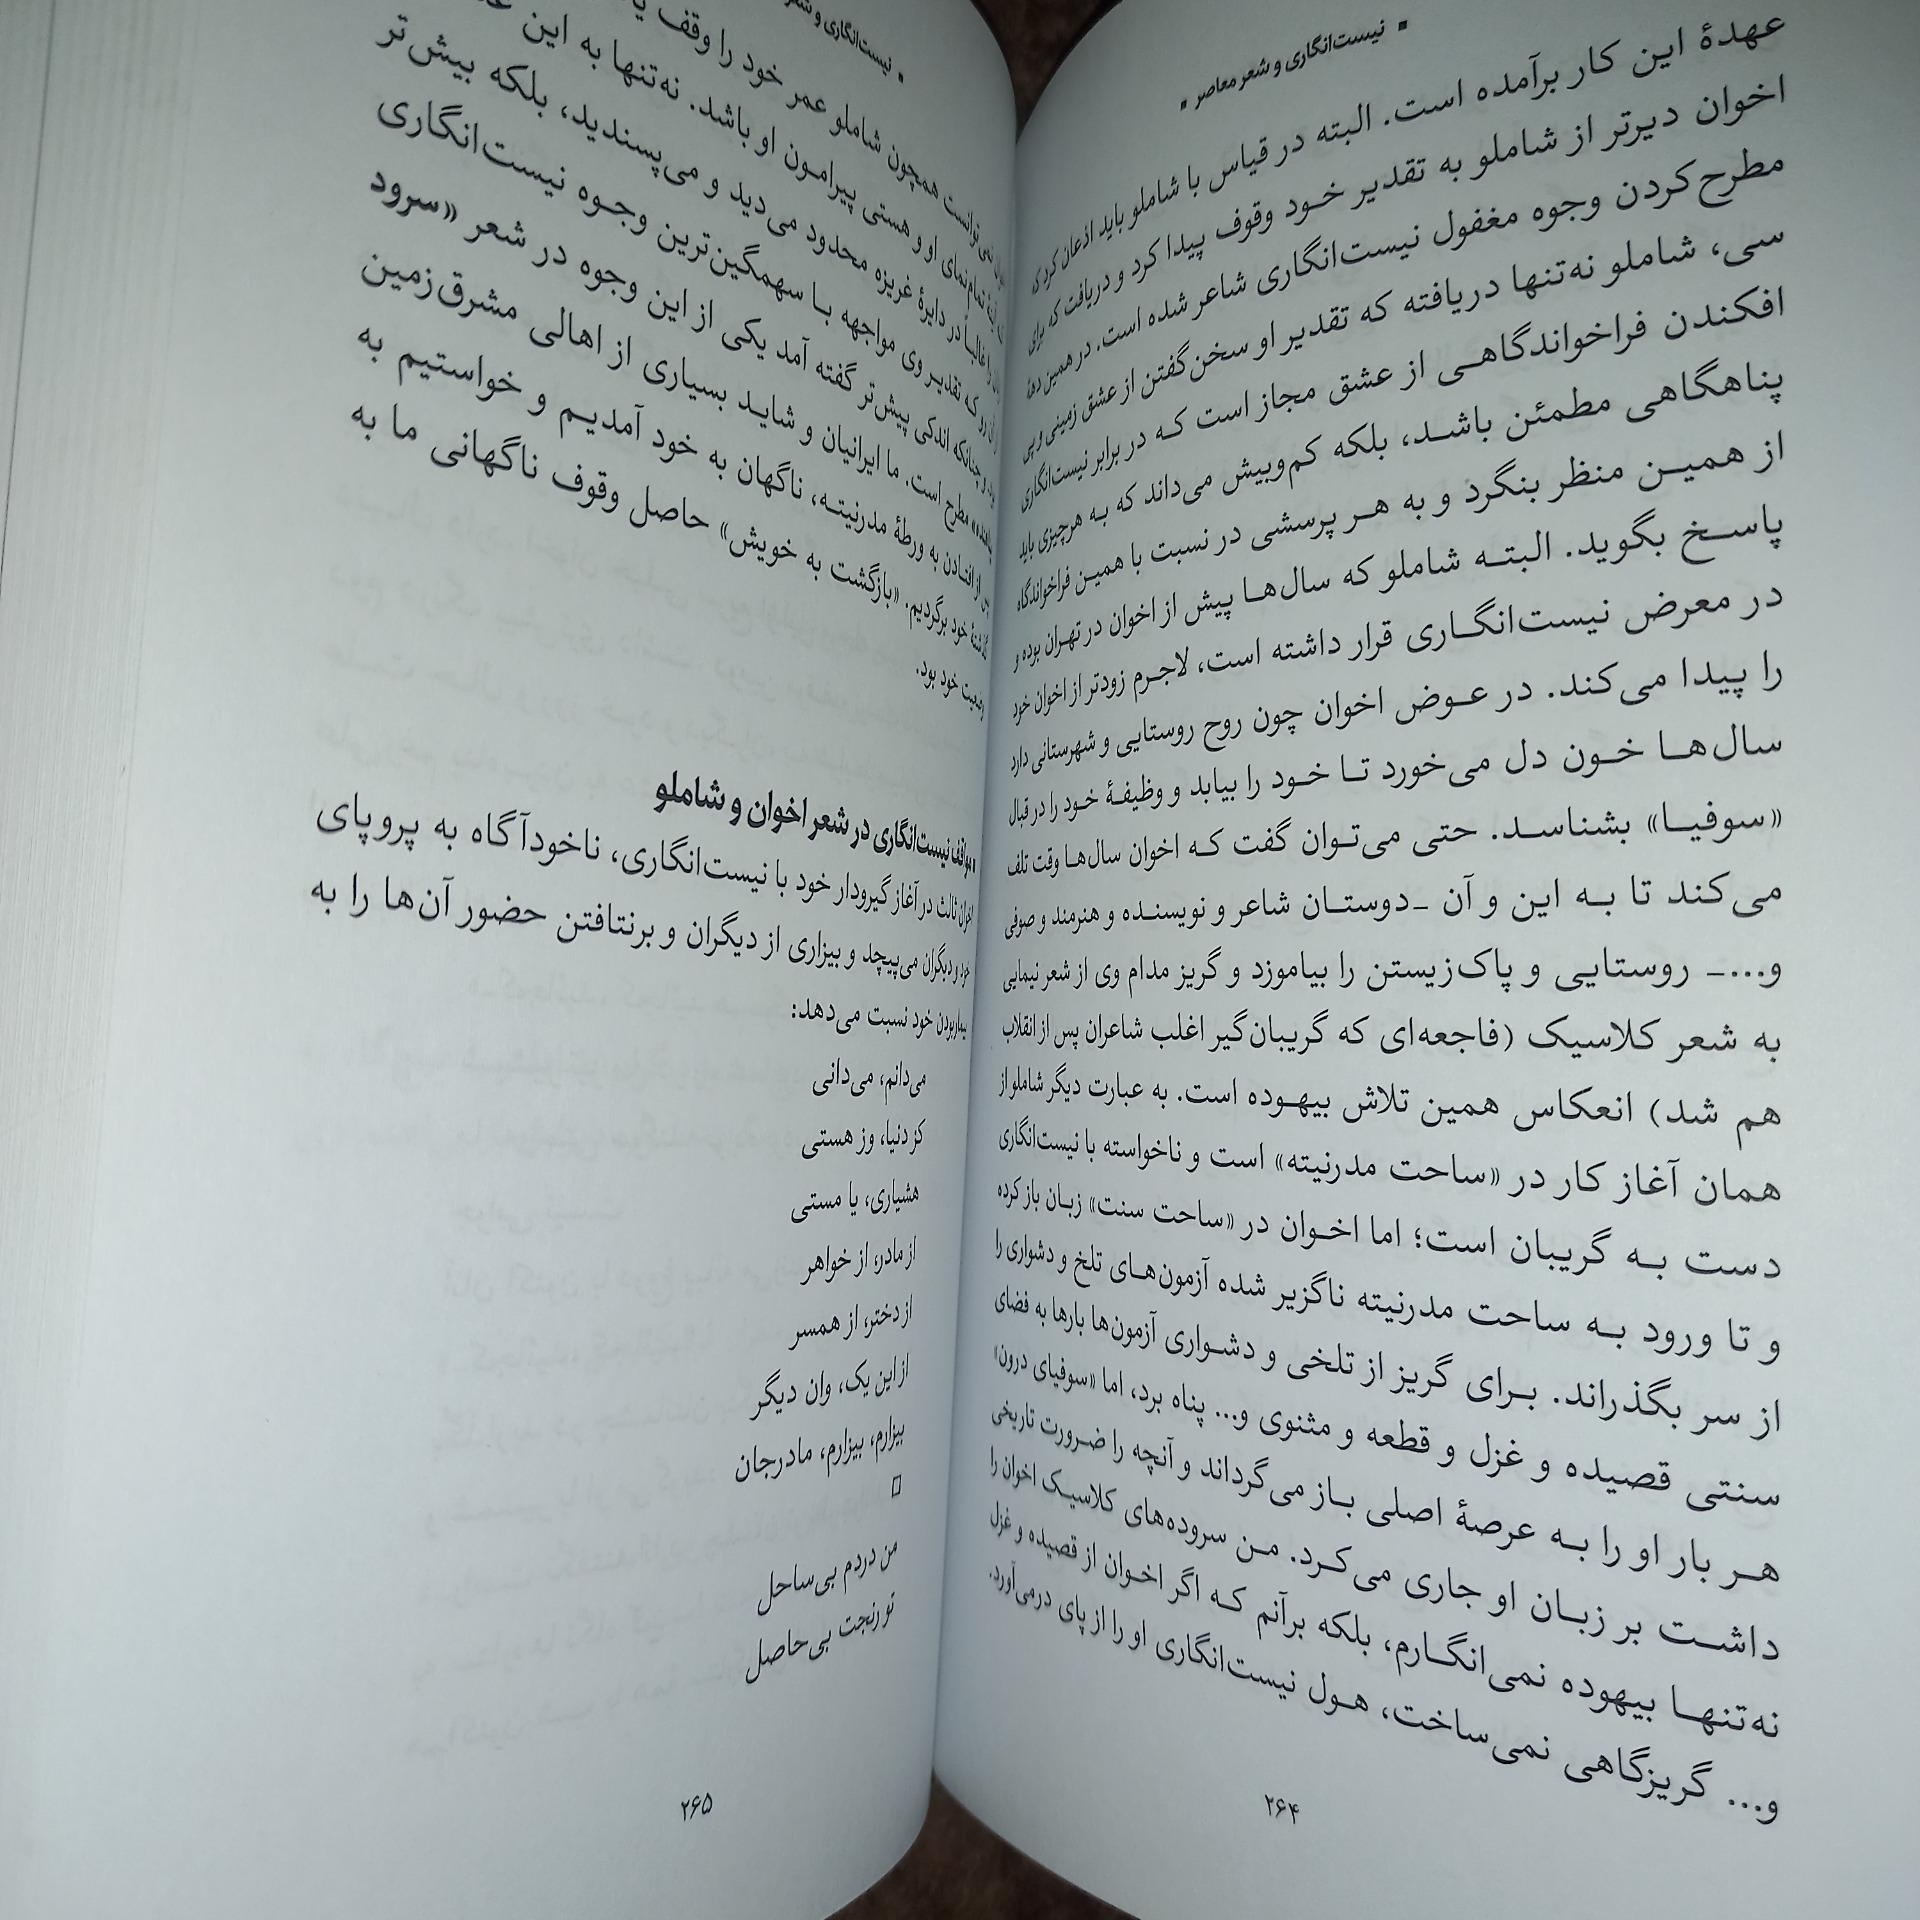 ▪ نیست‌انگاری و شعر معاصر ▪
عهدهٔ این کار برآمده است. البته در قیاس با شاملو باید اذعان کرد که
اخوان دیرتر از شاملو به تقدیر خود وقوف پیدا کرد و دریافت که برای
مطرح‌کردن وجوه مغفول نیست‌انگاری شاعر شده است. در همین دههٔ
سی، شاملو نه‌تنها دریافته که تقدیر او سخن‌گفتن از عشق زمینی و پی
افکندن فراخواندگاهی از عشق مجاز است که در برابر نیست‌انگاری
پناهگاهی مطمئن باشد، بلکه کم‌وبیش می‌داند که به هرچیزی باید
از همین منظر بنگرد و به هر پرسشی در نسبت با همین فراخواندگاه
پاسخ بگوید. البته شاملو که سال‌ها پیش از اخوان در تهران بوده و
در معرض نیست‌انگاری قرار داشته است، لاجرم زودتر از اخوان خود
را پیدا می‌کند. در عوض اخوان چون روح روستایی و شهرستانی دارد
سال‌ها خون دل می‌خورد تا خود را بیابد و وظیفهٔ خود را در قبال
«سوفیا» بشناسد. حتی می‌توان گفت که اخوان سال‌ها وقت تلف
می‌کند تا به این و آن ـ دوستان شاعر و نویسنده و هنرمند و صوفی
و...ـ روستایی و پاک‌زیستن را بیاموزد و گریز مدام وی از شعر نیمایی
به شعر کلاسیک (فاجعه‌ای که گریبان‌گیر اغلب شاعران پس از انقلاب
هم شد) انعکاس همین تلاش بیهوده است. به عبارت دیگر شاملو از
همان آغاز کار در «ساحت مدرنیته» است و ناخواسته با نیست‌انگاری
دست به گریبان است؛ اما اخوان در «ساحت سنت» زبان باز کرده
و تا ورود به ساحت مدرنیته ناگزیر شده آزمون‌های تلخ و دشواری را
از سر بگذراند. برای گریز از تلخی و دشواری آزمون‌ها بارها به فضای
سنتی قصیده و غزل و قطعه و مثنوی و... پناه برد، اما «سوفیای درون»
هر بار او را به عرصهٔ اصلی باز می‌گرداند و آنچه را ضرورت تاریخی
داشت بر زبان او جاری می‌کرد. من سروده‌های کلاسیک اخوان را
نه‌تنها بیهوده نمی‌انگارم، بلکه برآنم که اگر اخوان از قصیده و غزل
و... گریزگاهی نمی‌ساخت، هول نیست‌انگاری او را از پای درمی‌آورد.
۲۶۴
▪ نیست‌انگاری و شعر
نمی‌توانست همچون شاملو عمر خود را وقف
تمام‌نمای او و هستی پیرامون او باشد. نه‌تنها به این
را غالباً در دایرهٔ غریزه محدود می‌دید و می‌پسندید، بلکه بیش‌تر
رو که تقدیر وی مواجهه با سهمگین‌ترین وجوه نیست‌انگاری
و چنانکه اندکی پیش‌تر گفته آمد یکی از این وجوه در شعر «سرود
مطرح است. ما ایرانیان و شاید بسیاری از اهالی مشرق‌زمین
پس از افتادن به ورطهٔ مدرنیته، ناگهان به خود آمدیم و خواستیم به
گذشتهٔ خود برگردیم. «بازگشت به خویش» حاصل وقوف ناگهانی ما به
وضعیت خود بود.
▪ مواقف نیست‌انگاری در شعر اخوان و شاملو
اخوان ثالث در آغاز گیرودار خود با نیست‌انگاری، ناخودآگاه به پروپای
خود و دیگران می‌پیچد و بیزاری از دیگران و برنتافتن حضور آن‌ها را به
بیماربودن خود نسبت می‌دهد:
می‌دانم، می‌دانی
کز دنیا، وز هستی
هشیاری، یا مستی
از مادر، از خواهر
از دختر، از همسر
از این یک، وان دیگر
بیزارم، بیزارم، مادرجان
□
من دردم بی‌ساحل
تو رنجت بی‌حاصل
۲۶۵